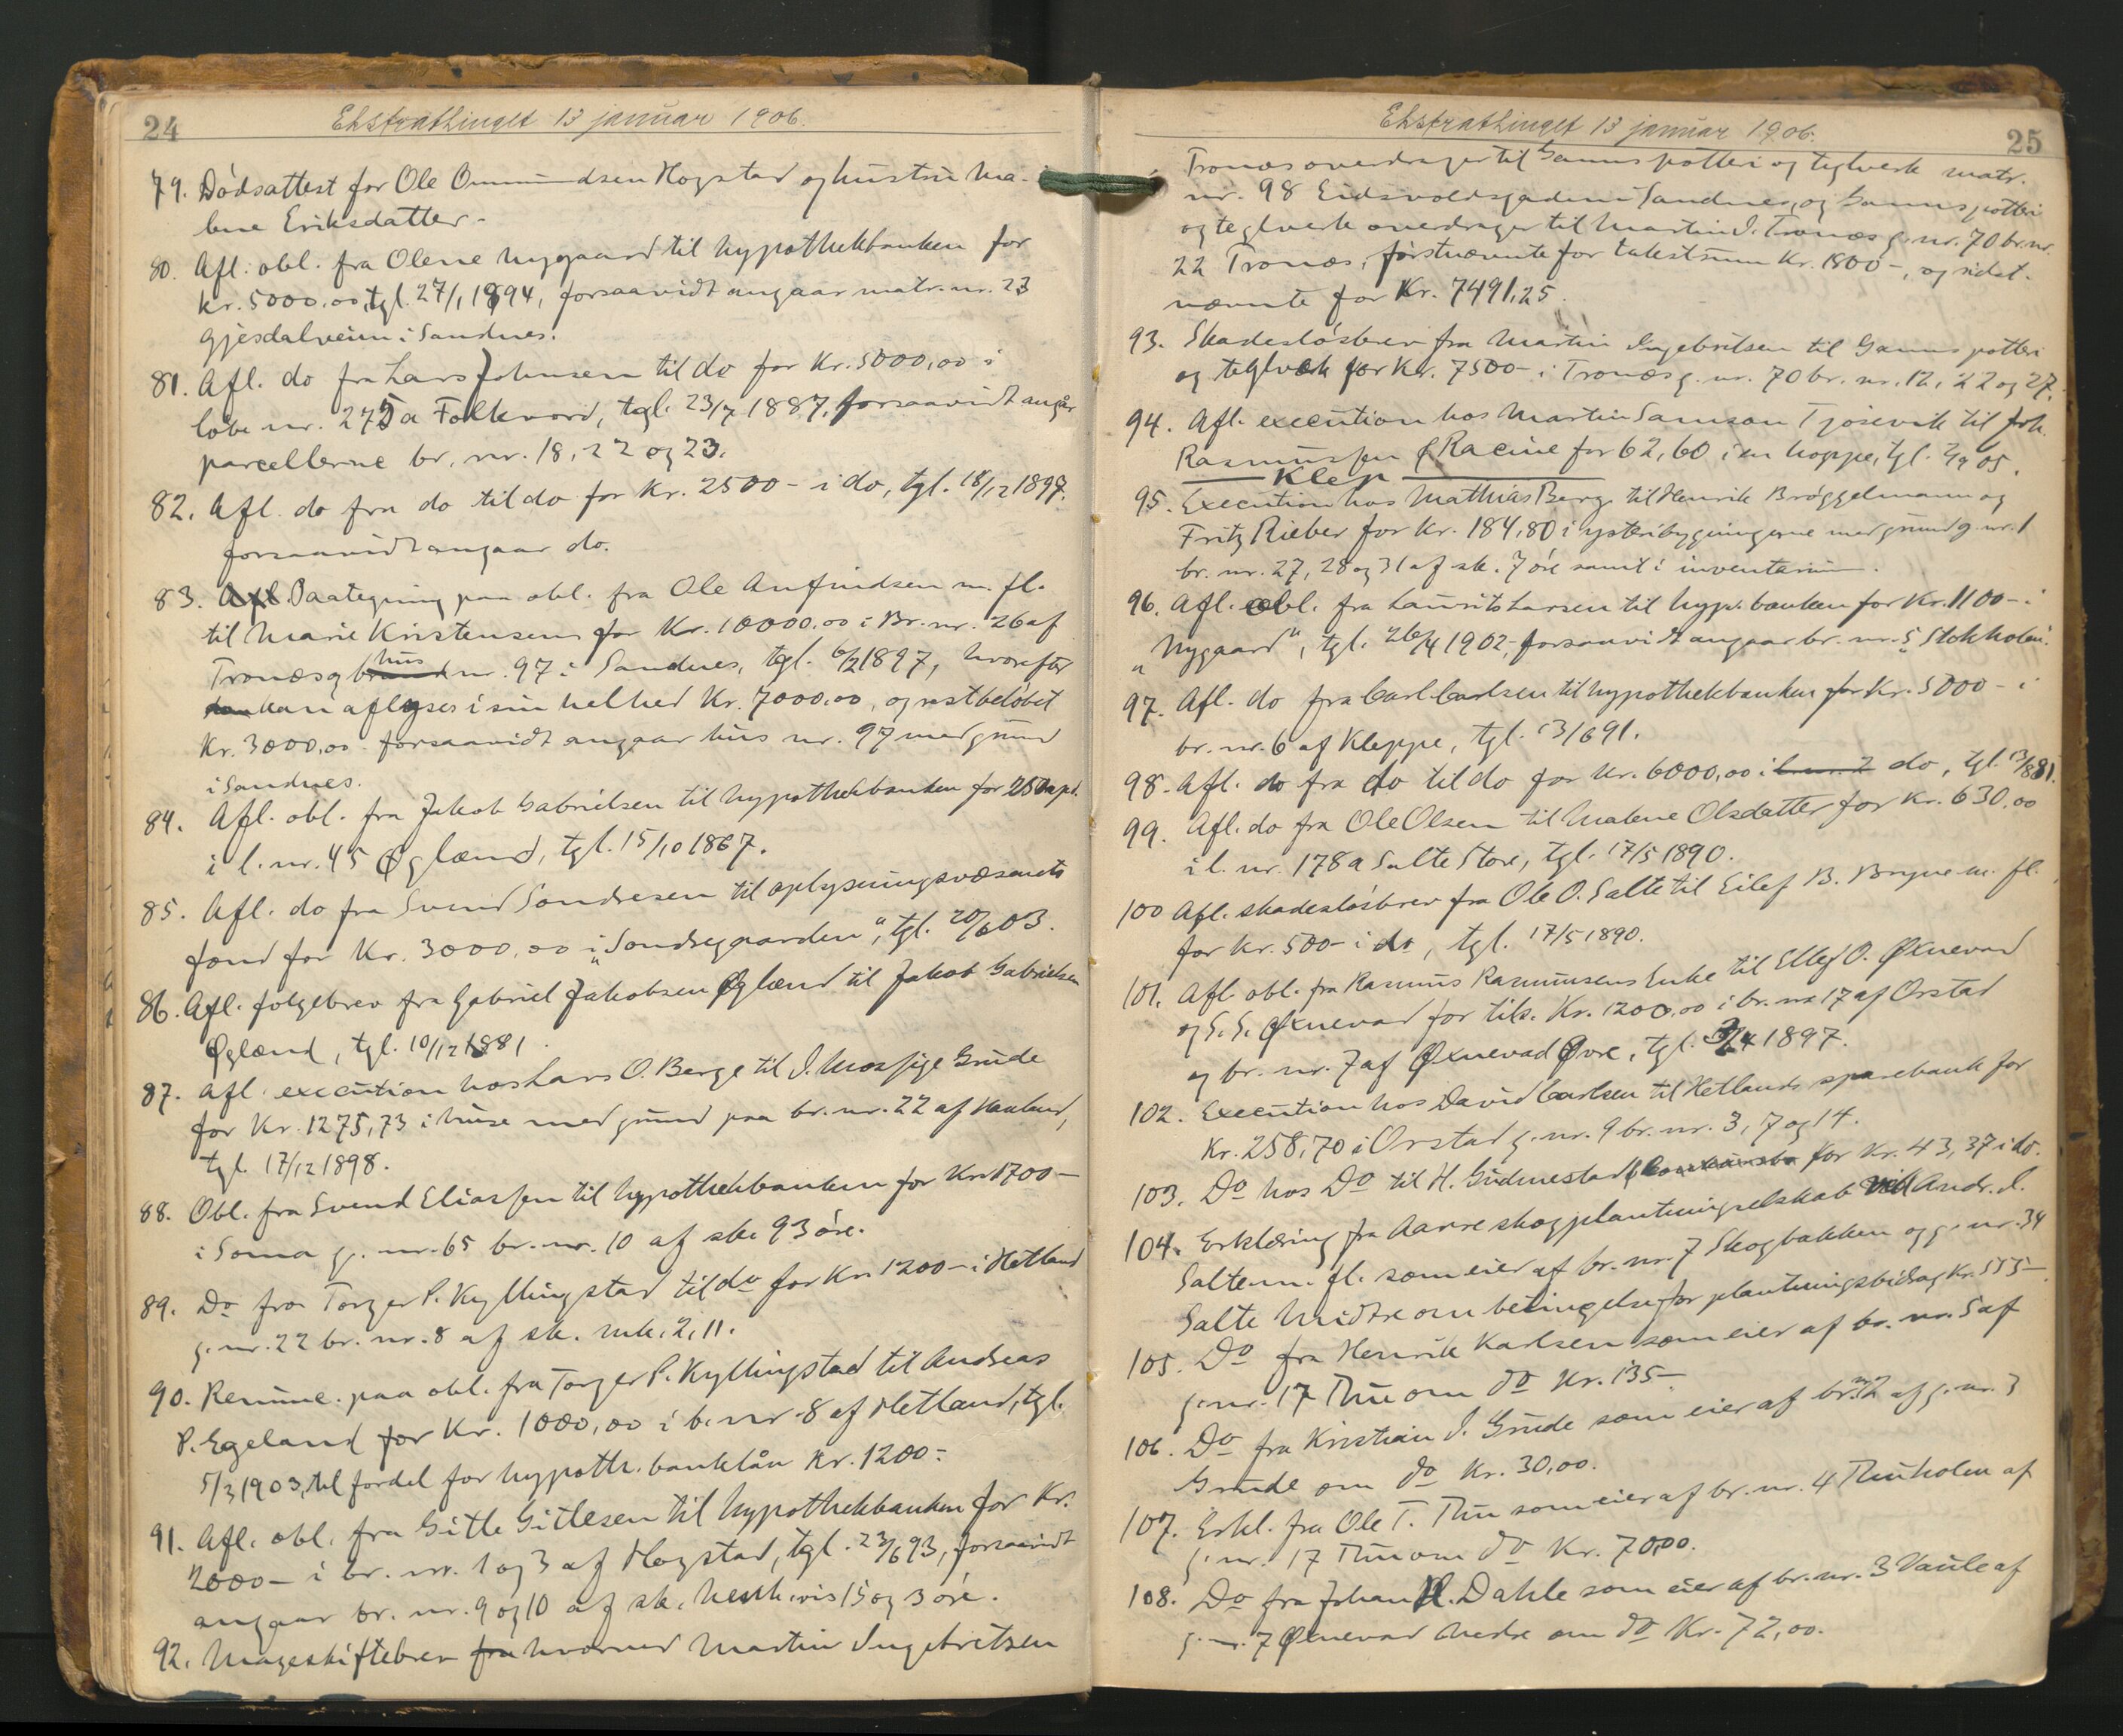 24
Ekstrathinget 13 januar 1906.
79. Dødsattest for Ole Ommundsen Hogstad og hustru Ma-
lene Eriksdatter.
80. Afl. obl. fra Olene Nygaard til Hypothekbanken for
kr. 5000,00, tgl. 27/1 1894, forsaavidt angaar matr. nr. 23
Gjesdalveien i Sandnes.
81. Afl. do fra Lars Johnsen til do for Kr. 5000,00 i
løbe nr. 275a Folkvord, tgl. 23/7 1887, forsaavidt angår
parcellerne br. nr. 18, 22 og 23.
82. Afl. do fra do til do for Kr. 2500- i do, tgl. 18/12 1897.
forsaavidt angaar do.
83. Afl. Paategning paa obl. fra Ole Anfindsen m. fl.
til Marie Kristensen for Kr. 10000,00 i Br. nr. 26 af
Tronæs og hus nr. 97 i Sandnes, tgl. 6/2 1897, hvorefter
kan aflyses i sin helhed Kr. 7000,00, og restbeløbet
Kr. 3000,00 forsaavidt angaar hus nr. 97 med grund
i Sandnes.
84. Afl. obl. fra Jakob Gabrielsen til Hypothekbanken for 250 spd.
i l. nr. 45 Øglænd, tgl. 15/10 1867.
85. Afl. do fra Svend Sondresen til oplysningsvæsenets
fond for Kr. 3000,00 i „Sondregaarden“, tgl. 20/6 03.
86. Afl. følgebrev fra Gabriel Jakobsen Øglænd til Jakob Gabrielsen
Øglænd, tgl. 10/12 1881.
87. Afl. execution hos Lars O. Berge til J. Mossige Grude
for Kr. 1275,73 i huse med grund paa br. nr. 22 af Hauland,
tgl. 17/12 1898.
88. Obl. fra Svend Eliassen til Hypothekbanken for Kr. 1700-
i Soma g. nr. 65 br. nr. 10 af sk. 93 øre.
89. Do fra Torger P. Kyllingstad til do for Kr. 1200- i Hetland
g. nr. 22 br. nr. 8 af sk. mk. 2,11.
90. Renunc. paa obl. fra Torger P. Kyllingstad til Andreas
P. Egeland for Kr. 1000,00 i b. nr. 8 af Hetland, tgl.
5/3 1903, til fordel for hypoth. banklån Kr. 1200-
91. Afl. obl. fra Gitle Gitlesen til Hypothekbanken for Kr.
2000- i br. nr. 1 og 3 af Hogstad, tgl. 23/6 93, forsaavidt
angaar br. nr. 9 og 10 af sk. henh.vis 15 og 3 øre.
92. Mageskiftebrev fra hvorved Martin Ingebretsen
25
Ekstrathinget 13 januar 1906.
Tronæs overdrager til Ganns potteri og teglverk matr.
nr. 98 Eidsvoldsgaden i Sandnes, og Ganns potteri
og teglverk overdrager til Martin I. Tronæs g. nr. 70 br. nr.
22 Tronæs, førstnævnte for takstsum Kr. 1800-, og sidst-
nævnte for Kr. 7491,25.
93. Skadesløsbrev fra Martin Ingebretsen til Ganns potteri
og teglværk for Kr. 7500- i Tronæs g. nr. 70 br. nr. 12, 22 og 27.
94. Afl. execution hos Martin Samson Tjosevik til Joh.
Rasmussen & Racine for 62,60 i en hoppe, tgl. 05.
Klep
95. Execution hos Mathias Berge til Henrik Brøggelmann og
Fritz Rieber for Kr. 184,80 i ysteribygningerne med grund g. nr. 1
br. nr. 27, 28 og 31 af sk. 7 øre samt i inventarium.
96. Afl. obl. fra Laurits Larsen til hyp. banken for Kr. 1100- i
„Nygaard“, tgl. 26/4 1902, forsaavidt angaar br. nr. 5 Stokholm.
97. Afl. do fra Carl Carlsen til hypothekbanken for Kr. 5000- i
br. nr. 6 af Kleppe, tgl. 13/6 91.
98. Afl. do fra do til do for Kr. 6000,00 i do, tgl. 13/8 81.
99. Afl. do fra Ole Olsen til Malene Olsdatter for Kr. 630,00
i l. nr. 178a Salte Store, tgl. 17/5 1890.
100 Afl. skadesløsbrev fra Ole O. Salte til Eilef B. Bryne m. fl.
for Kr. 500- i do, tgl. 17/5 1890.
101. Afl. obl. fra Rasmus Rasmussens Enke til Ellef O. Øxnevad
og S. S. Øxnevad for tils. Kr. 1200,00 i br. nr. 17 af Orstad
og br. nr. 7 af Øxnevad Øvre, tgl. 1897.
102. Execution hos David Carlsen til Hetlands sparebank for
Kr. 258,70 i Orstad g. nr. 9 br. nr. 3, 7 og 14.
103. Do hos Do til H. Gudmestad for Kr. 43,37 i do.
104. Erklæring fra Aarre skogplantningselskab ved Andr. I.
Salte m. fl. som eier af br. nr. 7 Skogbakken og g. nr. 34
Salte Midtre om betingelse for plantningsbidrag Kr. 555-
105. Do fra Henrik Karlsen som eier af br. nr. 5 af
g. nr. 17 Thu om do Kr. 135-
106. Do fra Kristian I. Grude som eier af br. nr. 2 af g. nr. 3
Grude om do Kr. 30,00.
107. Erkl. fra Ole T. Thu som eier af br. nr. 4 Thuholen af
g. nr. 17 Thu om do Kr. 70,00.
108. Do fra Johan H. Dahle som eier af br. nr. 3 Vaule af
g. nr. 7 Øxnevad Nedre om do Kr. 72,00.